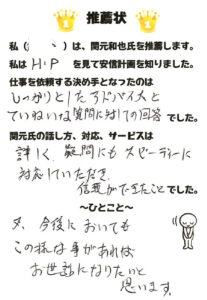 推薦状
私（　　）は、関元和也氏を推薦します。
私は H·P を見て安信計画を知りました。
仕事を依頼する決め手となったのは
しっかりとしたアドバイスと
ていねいな質問に対しての回答 でした。
関元氏の話し方、対応、サービスは
詳しく、疑問にもスピーディーに
対応していただき、
信頼ができたこと でした。
～ひとこと～
又、今後においても
この様な事があれば
お世話になりたいと
思います。